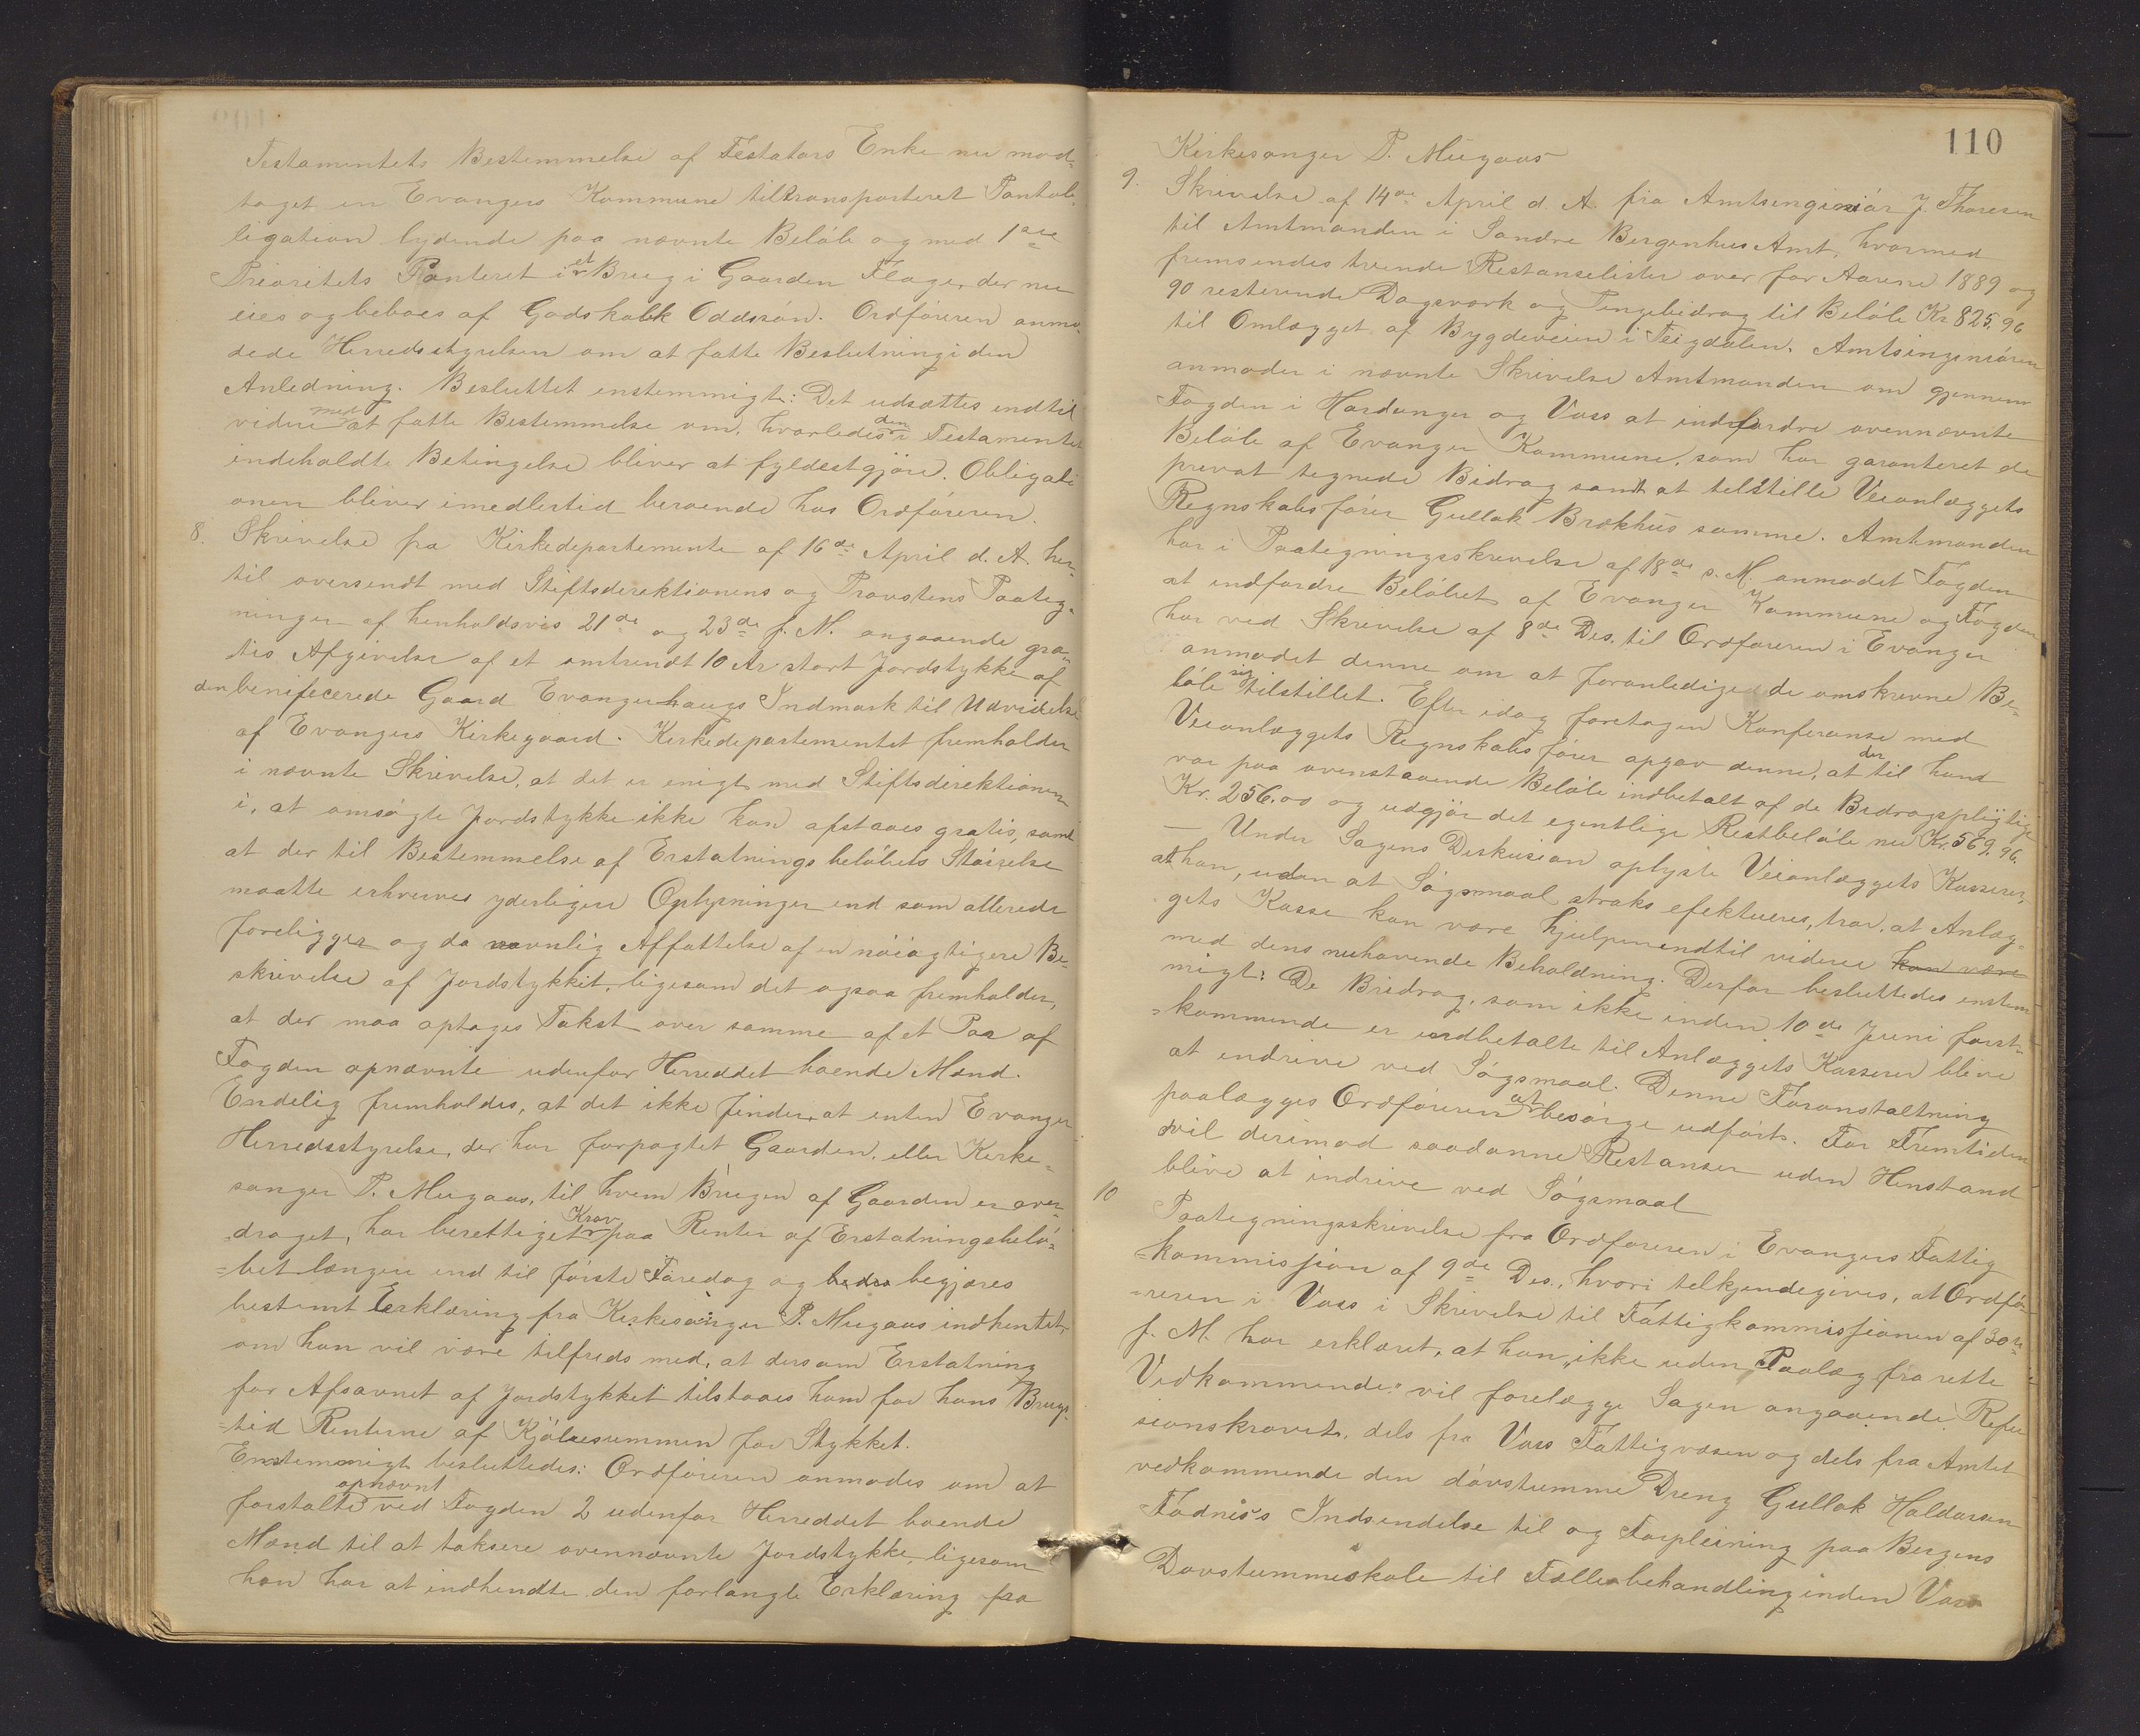 Testamentets Bestemmelse af Testators Enke nu mod-
taget en Evangers Kommune tiltransporteret Pantob-
ligation lydende paa nævnte Beløb og med 1ste
Prioritets Panteret i et Brug i Gaarden Flage, der nu
eies og beboes af Godskalk Oddssøn. Ordføreren anmo-
dede Herredsstyrelsen om at fatte Beslutning i den
Anledning. Besluttet enstemmigt: Det udsættes indtil
videre med at fatte Bestemmelse om, hvorledes den i Testamentet
indeholdte Betingelse bliver at fyldestgjøre. Obligati
onen bliver imedlertid beroende hos Ordføreren.
8. Skrivelse fra Kirkedepartemente af 16de April d. A. her-
til oversendt med Stiftsdirektionens og Provstens Paateg-
ninger af henholdsvis 21de og 23de f. M. angaaende gra-
tis Afgivelse af et omtrendt 10 Ar stort Jordstykke af
den benificerede Gaard Evangerhaugs Indmark til Udvidelse
af Evangers Kirkegaard. Kirkedepartementet fremholder
i nævnte Skrivelse, at det er enigt med Stiftsdirektionen
i, at omsøgte Jordstykke ikke kan afstaaes gratis, samt
at der til Bestemmelse af Erstatningsbeløbets Størrelse
maatte erhverves yderligere Oplysninger end som allerede
foreligger og da navnlig Affattelse af en nøiagtigere Be-
skrivelse af Jordstykket, ligesom det ogsaa fremholder,
at der maa optages Takst over samme af et Par af
Fogden opnævnte udenfor Herreddet boende Mænd.
Endelig fremholdes, at det ikke finder, at enten Evanger
Herredsstyrelse, der har forpagtet Gaarden, eller Kirke-
sanger P. Mugaas, til hvem Brugen af Gaarden er over-
draget, har berettiget Krav paa Renter af Erstatningsbelø-
=bet længere end til første Faredag og bedes begjæres
bestemt Erklæring fra Kirkesanger P. Mugaas indhentet,
om han vil være tilfreds med, at dersom Erstatning
for Afsavnet af Jordstykket tilstaaes ham for hans Brugs-
=tid Renterne af Kjøbesummen for Stykket.
Enstemmigt besluttedes: Ordføreren anmodes om at
forstalte opnævnt ved Fogden 2 udenfor Herreddet boende
Mænd til at taksere ovennævnte Jordstykke, ligesom
han har at indhendte den forlangte Erklæring fra
110
Kirkesanger P. Mugaas
9. Skrivelse af 14de April d. A. fra Amtsingeniør J. Thoresen
til Amtmanden i Søndre Bergenhus Amt, hvormed
fremsendes tvende Restanselister over for Aarene 1889 og
90 resterende Dagsværk og Pengebidrag til Beløb Kr. 825,96
til Omlægget af Bygdeveien i Teigdalen. Amtsingeniøren
anmoder i nævnte Skrivelse Amtmanden om gjennem
Fogden i Hardanger og Voss at indfordre ovennævnte
Beløb af Evanger Kommune, som har garanteret de
privat tegnede Bidrag samt at tilstille Veianlæggets
Regnskabsfører Gullak Brækhus samme. Amtmanden
har i Paategningsskrivelse af 18de s. M. anmodet Fogden
at indfordre Beløbet af Evanger Kommune og Fogden
har ved Skrivelse af 8de Ds. til Ordføreren i Evanger
anmodet denne om at foranledige de omskrevne Be-
løb sig tilstillet. Efter idag foretagen Konferanse med
Veianlæggets Regnskabsfører opgav denne, at der til ham
var paa ovenstaaende Beløb indbetalt af de Bidragspligtige
Kr. 256.00 og udgjør det egentlige Restbeløb nu Kr. 569,96.
— Under Sagens Diskusion oplyste Veianlæggets Kasserer,
at han, uden at Søgsmaal straks efektueres, tror, at Anlæg-
gets Kasse kan være hjulpen indtil videre kan være
med dens nuhavende Beholdning. Derfor besluttedes enstem-
migt: De Bidrag, som ikke inden 10de Juni først-
=kommende er indbetalte til Anlæggets Kasserer blive
at indrive ved Søgsmaal. Denne Foranstaltning
paalægges Ordføreren at besørge udført. For Fremtiden
vil derimod saadanne Restanser uden Henstand
blive at indrive ved Søgsmaal
10 Paategningsskrivelse fra Ordføreren i Evangers Fattig
=kommission af 9de Ds., hvori tilkjendegives, at Ordfø-
=reren i Voss i Skrivelse til Fattigkommissionen af 30te
f. M. har erklæret, at han „ikke uden Paalæg fra rette
Vedkommende“ vil forelægge Sagen angaaende Refu
sionskravet, dels fra Voss Fattigvæsen og dels fra Amtet
vedkommende den døvstumme Dreng Gullak Haldorsen
Fødnes's Indsendelse til og Forpleining paa Bergens
Døvstummeskole til Fællesbehandling inden Voss